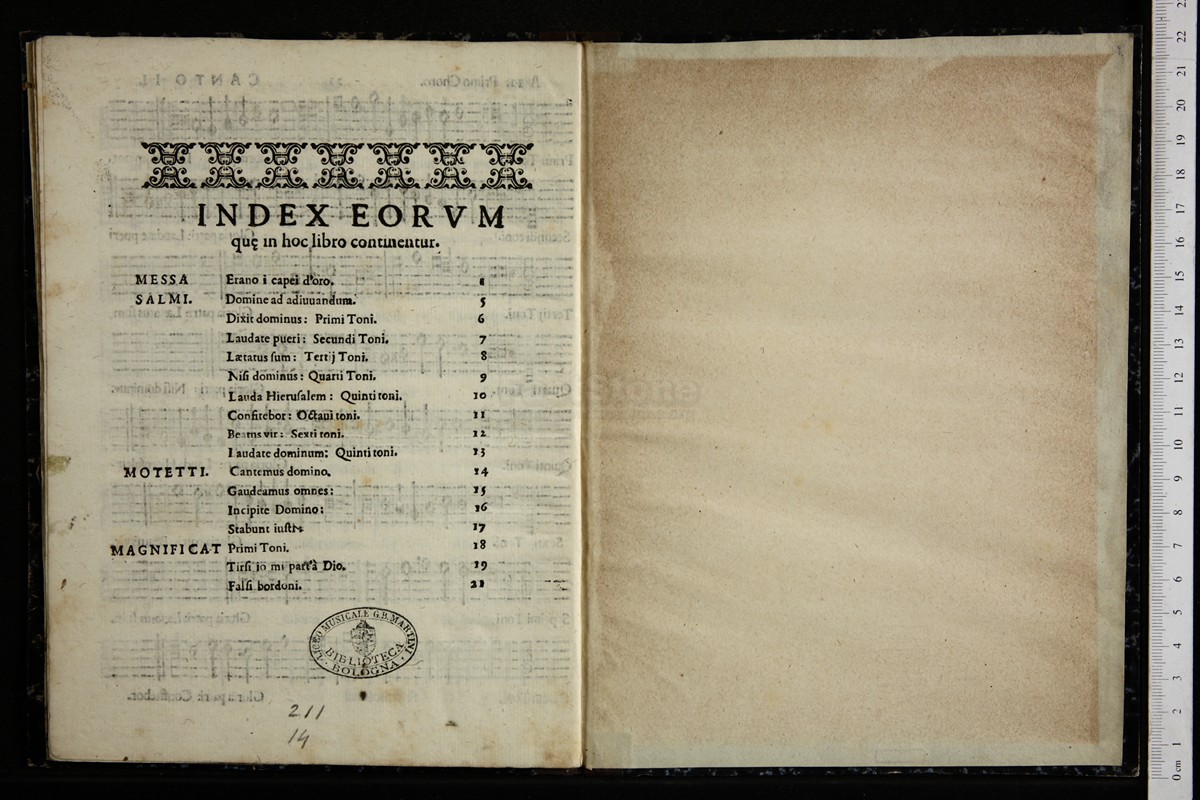 INDEX EORVM
quę in hoc libro continentur.
MESSA Erano i capei d'oro. 1
SALMI. Domine ad adiuuandum. 5
Dixit dominus: Primi Toni. 6
Laudate pueri: Secundi Toni. 7
Lætatus ſum: Tertij Toni. 8
Niſi dominus: Quarti Toni. 9
Lauda Hieruſalem: Quinti toni. 10
Confitebor: Octaui toni. 11
Beatus vir: Sexti toni. 12
Laudate dominum: Quinti toni. 13
MOTETTI. Cantemus domino. 14
Gaudeamus omnes: 15
Incipite Domino: 16
Stabunt iuſti. 17
MAGNIFICAT Primi Toni. 18
Tirſi io mi part'à Dio. 19
Falſi bordoni. 21
LICEO MUSICALE G.B. MARTINI
BIBLIOTECA
BOLOGNA
211
14
0 cm 1 2 3 4 5 6 7 8 9 10 11 12 13 14 15 16 17 18 19 20 21 22